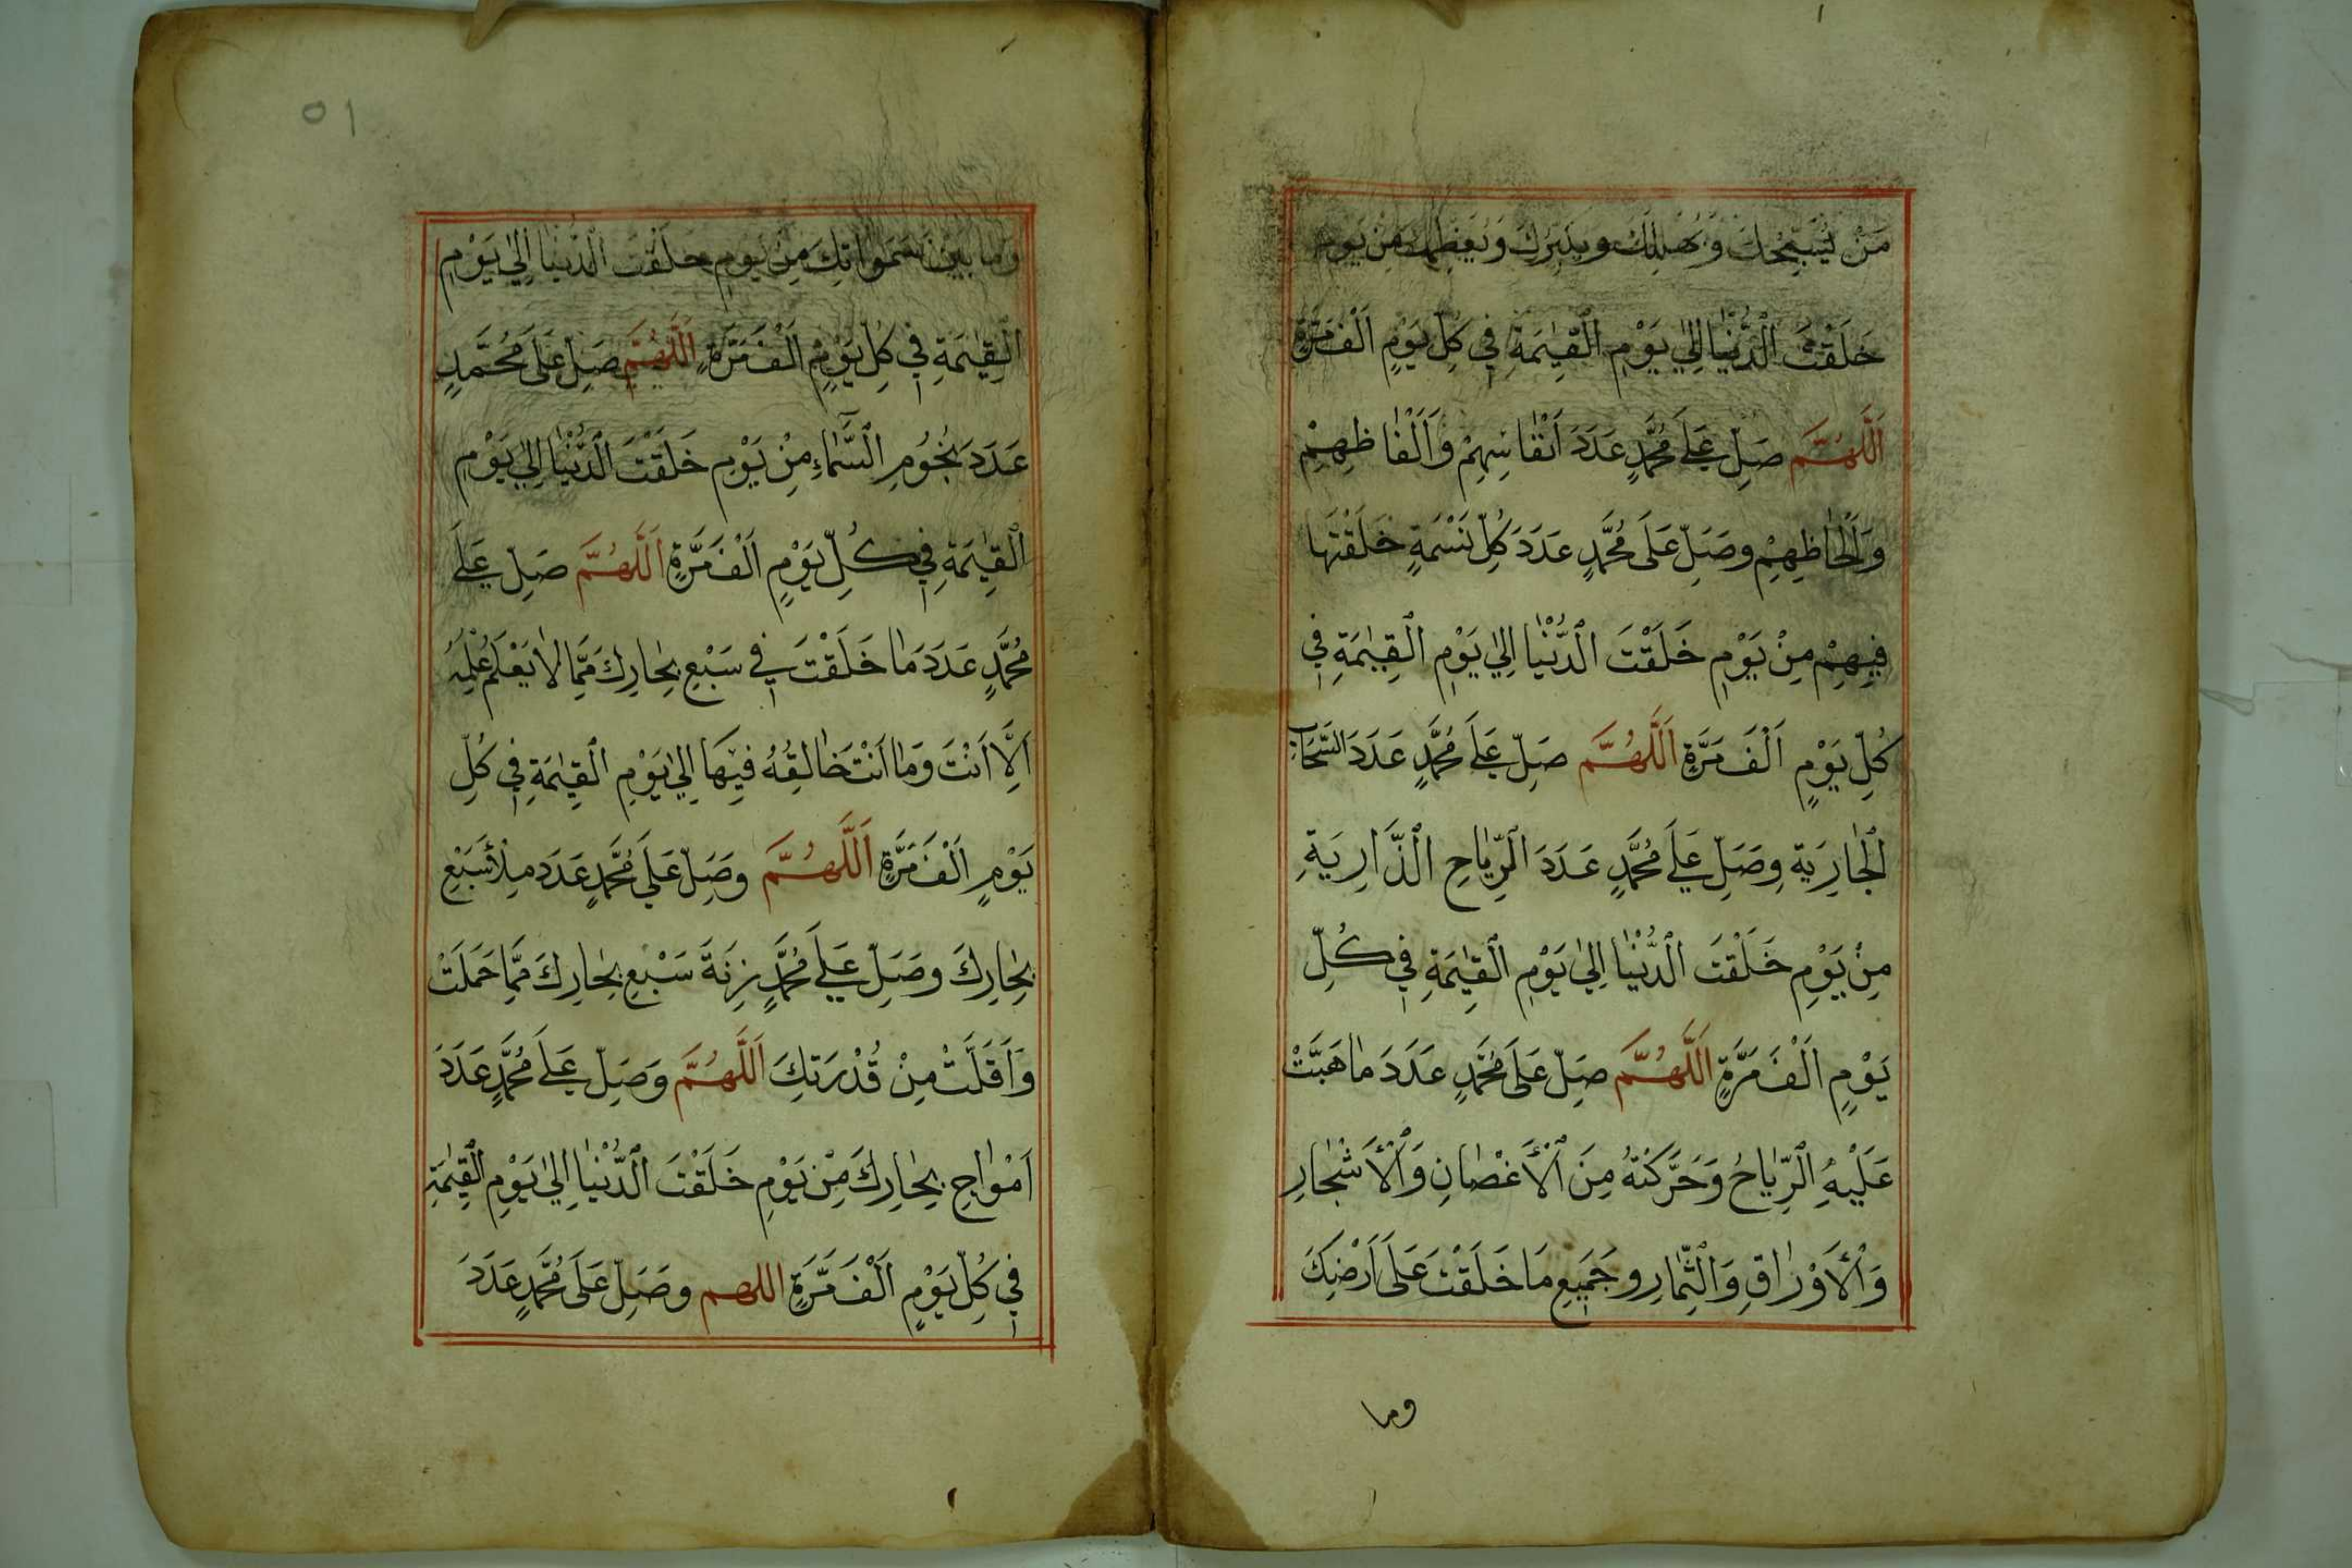 مَنْ يُسَبِّحُكَ وَيُهَلِّلُكَ وَيُكَبِّرُكَ وَيُعَظِّمُكَ مِنْ يَوْمِ
خَلَقْتَ الدُّنْيَا اِلٰى يَوْمِ الْقِيٰمَةِ فِي كُلِّ يَوْمٍ اَلْفَ مَرَّةٍ
اَللّٰهُمَّ صَلِّ عَلَى مُحَمَّدٍ عَدَدَ اَنْفَاسِهِمْ وَاَلْفَاظِهِمْ
وَاَلْحَاظِهِمْ وصَلِّ عَلَى مُحَمَّدٍ عَدَدَ كُلِّ نَسْمَةٍ خَلَقْتَهَا
فِيهِمْ مِنْ يَوْمِ خَلَقْتَ الدُّنْيَا اِلٰى يَوْمِ الْقِيٰمَةِ فِي
كُلِّ يَوْمٍ اَلْفَ مَرَّةٍ اَللّٰهُمَّ صَلِّ عَلَى مُحَمَّدٍ عَدَدَ السَّحَابِ
الْجَارِيَةِ وصَلِّ عَلَى مُحَمَّدٍ عَدَدَ الرِّيَاحِ الذَّارِيَةِ
مِنْ يَوْمِ خَلَقْتَ الدُّنْيَا اِلٰى يَوْمِ الْقِيٰمَةِ فِي كُلِّ
يَوْمٍ اَلْفَ مَرَّةٍ اَللّٰهُمَّ صَلِّ عَلَى مُحَمَّدٍ عَدَدَ مَا هَبَّتْ
عَلَيْهِ الرِّيَاحُ وَحَرَّكَتْهُ مِنَ الْأَغْصَانِ وَالْأَشْجَارِ
وَالْأَوْرَاقِ وَالثِّمَارِ وجَمِيعِ مَا خَلَقْتَ عَلَى اَرْضِكَ
وما
٥١
وَمَا بَيْنَ سَمَوَاتِكَ مِنْ يَوْمِ خَلَقْتَ الدُّنْيَا اِلٰى يَوْمِ
الْقِيٰمَةِ فِي كُلِّ يَوْمٍ اَلْفَ مَرَّةٍ اَللّٰهُمَّ صَلِّ عَلَى مُحَمَّدٍ
عَدَدَ نُجُومِ السَّمَاءِ مِنْ يَوْمِ خَلَقْتَ الدُّنْيَا اِلٰى يَوْمِ
الْقِيٰمَةِ فِي كُلِّ يَوْمٍ اَلْفَ مَرَّةٍ اَللّٰهُمَّ صَلِّ عَلَى
مُحَمَّدٍ عَدَدَ مَا خَلَقْتَ فِي سَبْعِ بِحَارِكَ مِمَّا لَا يَعْلَمُ عِلْمَهُ
اِلَّا اَنْتَ وَمَا اَنْتَ خَالِقُهُ فِيهَا اِلٰى يَوْمِ الْقِيٰمَةِ فِي كُلِّ
يَوْمٍ اَلْفَ مَرَّةٍ اَللّٰهُمَّ وصَلِّ عَلَى مُحَمَّدٍ عَدَدَ مِلْأِ سَبْعِ
بِحَارِكَ وصَلِّ عَلَى مُحَمَّدٍ زِنَةَ سَبْعِ بِحَارِكَ مِمَّا حَمَلَتْ
وَاَقَلَّتْ مِنْ قُدْرَتِكَ اَللّٰهُمَّ وَصَلِّ عَلَى مُحَمَّدٍ عَدَدَ
اَمْوَاجِ بِحَارِكَ مِنْ يَوْمِ خَلَقْتَ الدُّنْيَا اِلٰى يَوْمِ الْقِيٰمَةِ
فِي كُلِّ يَوْمٍ اَلْفَ مَرَّةٍ اللهم وصَلِّ عَلَى مُحَمَّدٍ عَدَدَ